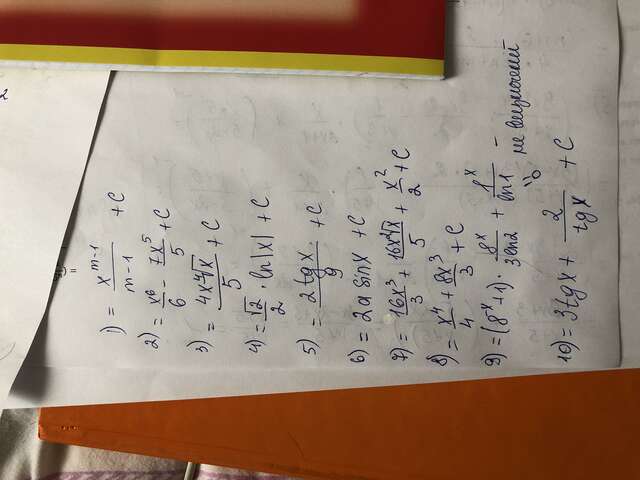 1) = x^(m-1)/(m-1) + C
2) = x^6/6 - 7x^5/5 + C
3) = 4x ∜x/5 + C
4) = √2/2 · ln|x| + C
5) = 2tgx/9 + C
6) = 2a sinx + C
7) = 16x^3/3 + 16x^2√x/5 + x^2/2 + C
8) = x^4/4 + 8x^3/3 + C
9) = (8^x+1) · 8^x/3ln2 + 1^x/ln1 -
не
10) = 3tgx + 2/tgx + C